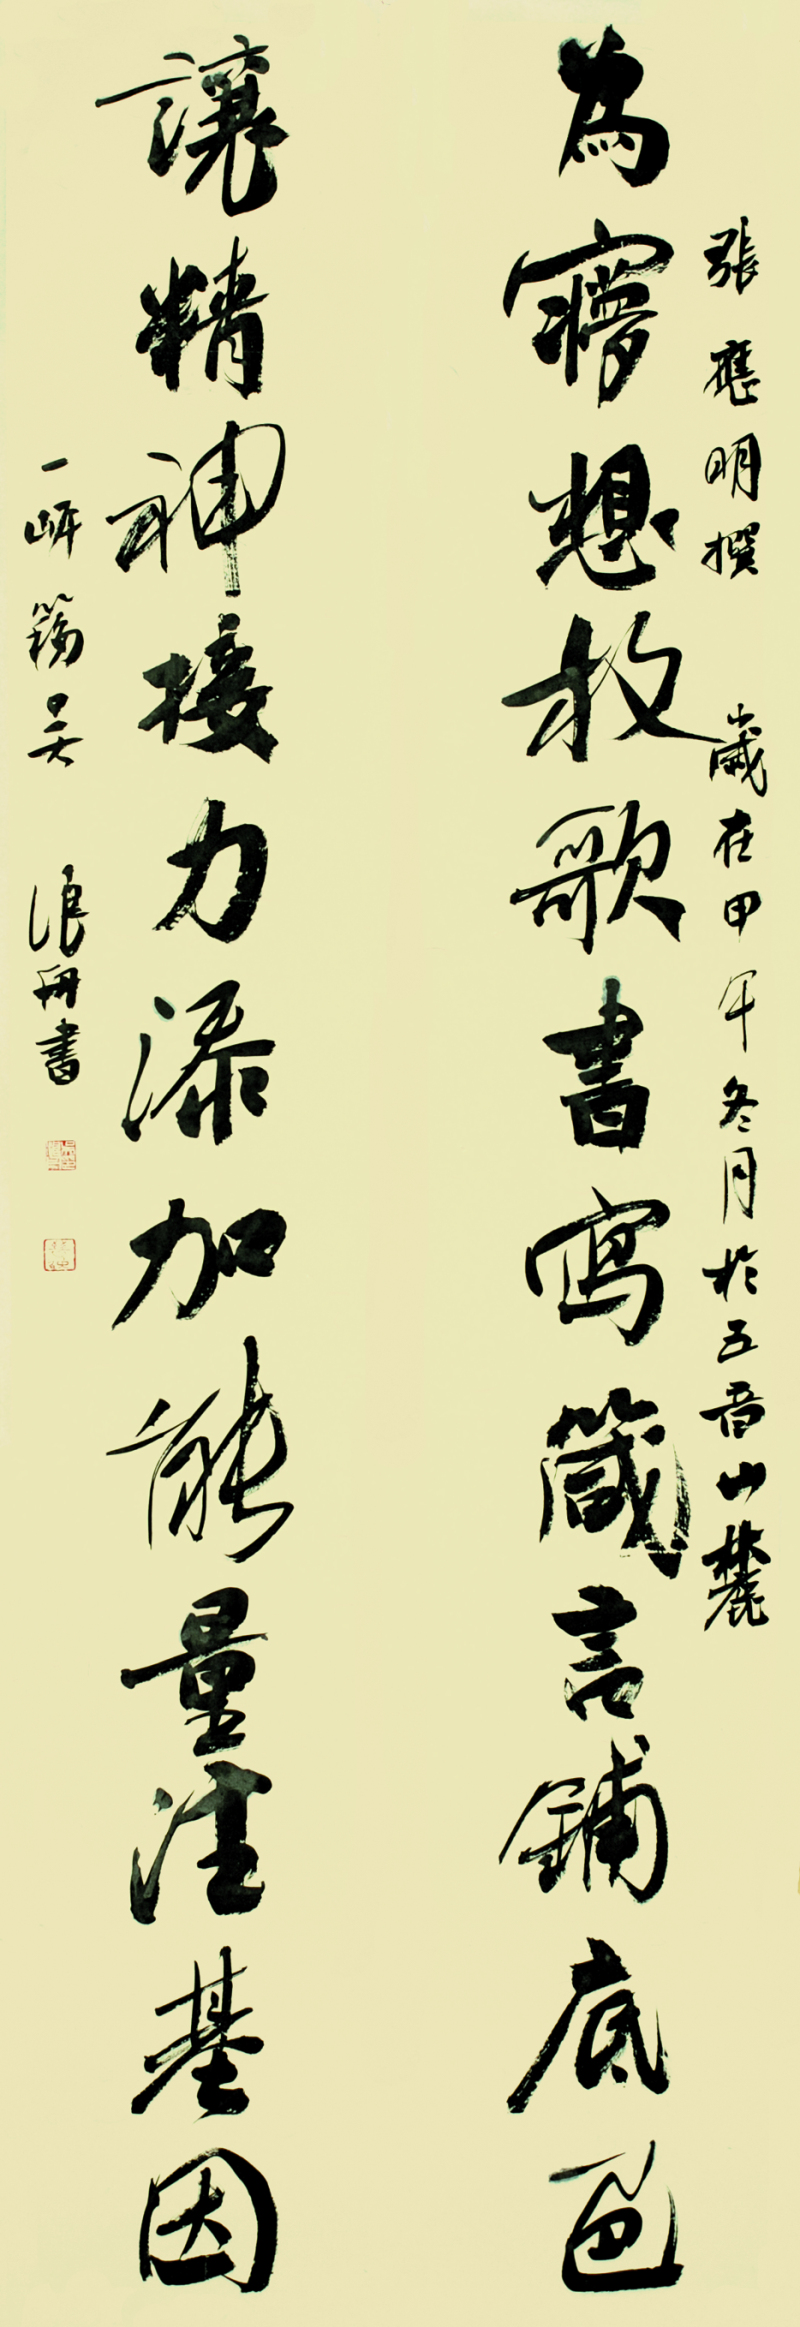 張應明撰 歲在甲午冬月於五音山麓
為㝱想放歌書寫箴言鋪底色
讓精神接力添加能量注基因
一岍 吴 浪舟書